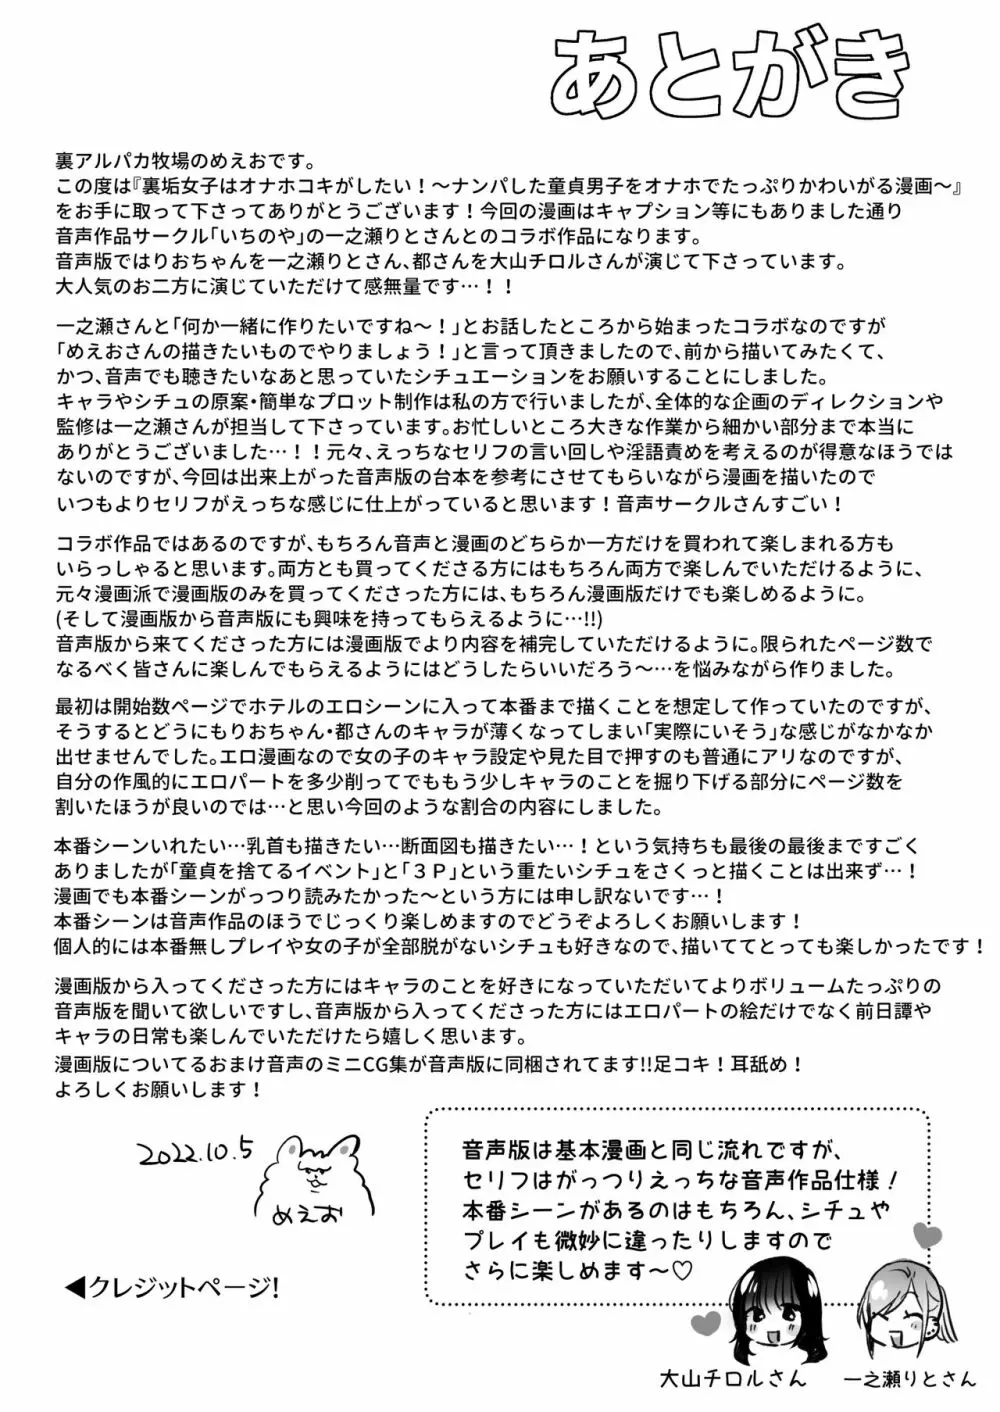 あとがき
裏アルパカ牧場のめえおです。
この度は『裏垢女子はオナホコキがしたい！～ナンパした童貞男子をオナホでたっぷりかわいがる漫画～』
をお手に取って下さってありがとうございます！今回の漫画はキャプション等にもありました通り
音声作品サークル「いちのや」の一之瀬りとさんとのコラボ作品になります。
音声版ではりおちゃんを一之瀬りとさん、都さんを大山チロルさんが演じて下さっています。
大人気のお二方に演じていただけて感無量です…！！
一之瀬さんと「何か一緒に作りたいですね～！」とお話したところから始まったコラボなのですが
「めえおさんの描きたいものでやりましょう！」と言って頂きましたので、前から描いてみたくて、
かつ、音声でも聴きたいなあと思っていたシチュエーションをお願いすることにしました。
キャラやシチュの原案・簡単なプロット制作は私の方で行いましたが、全体的な企画のディレクションや
監修は一之瀬さんが担当して下さっています。お忙しいところ大きな作業から細かい部分まで本当に
ありがとうございました…！！元々、えっちなセリフの言い回しや淫語責めを考えるのが得意なほうでは
ないのですが、今回は出来上がった音声版の台本を参考にさせてもらいながら漫画を描いたので
いつもよりセリフがえっちな感じに仕上がっていると思います！音声サークルさんすごい！
コラボ作品ではあるのですが、もちろん音声と漫画のどちらか一方だけを買われて楽しまれる方も
いらっしゃると思います。両方とも買ってくださる方にはもちろん両方で楽しんでいただけるように、
元々漫画派で漫画版のみを買ってくださった方には、もちろん漫画版だけでも楽しめるように。
(そして漫画版から音声版にも興味を持ってもらえるように…!!)
音声版から来てくださった方には漫画版でより内容を補完していただけるように。限られたページ数で
なるべく皆さんに楽しんでもらえるようにはどうしたらいいだろう～…を悩みながら作りました。
最初は開始数ページでホテルのエロシーンに入って本番まで描くことを想定して作っていたのですが、
そうするとどうにもりおちゃん・都さんのキャラが薄くなってしまい「実際にいそう」な感じがなかなか
出せませんでした。エロ漫画なので女の子のキャラ設定や見た目で押すのも普通にアリなのですが、
自分の作風的にエロパートを多少削ってでももう少しキャラのことを掘り下げる部分にページ数を
割いたほうが良いのでは…と思い今回のような割合の内容にしました。
本番シーンいれたい…乳首も描きたい…断面図も描きたい…！という気持ちも最後の最後まですごく
ありましたが「童貞を捨てるイベント」と「３Ｐ」という重たいシチュをさくっと描くことは出来ず…！
漫画でも本番シーンがっつり読みたかった～という方には申し訳ないです…！
本番シーンは音声作品のほうでじっくり楽しめますのでどうぞよろしくお願いします！
個人的には本番無しプレイや女の子が全部脱がないシチュも好きなので、描いててとっても楽しかったです！
漫画版から入ってくださった方にはキャラのことを好きになっていただいてよりボリュームたっぷりの
音声版を聞いて欲しいですし、音声版から入ってくださった方にはエロパートの絵だけでなく前日譚や
キャラの日常も楽しんでいただけたら嬉しく思います。
漫画版についてるおまけ音声のミニCG集が音声版に同梱されてます!!足コキ！耳舐め！
よろしくお願いします！
2022.10.5
めえお
◀クレジットページ!
音声版は基本漫画と同じ流れですが、
セリフはがっつりえっちな音声作品仕様！
本番シーンがあるのはもちろん、シチュや
プレイも微妙に違ったりしますので
さらに楽しめます～♡
大山チロルさん
一之瀬りとさん